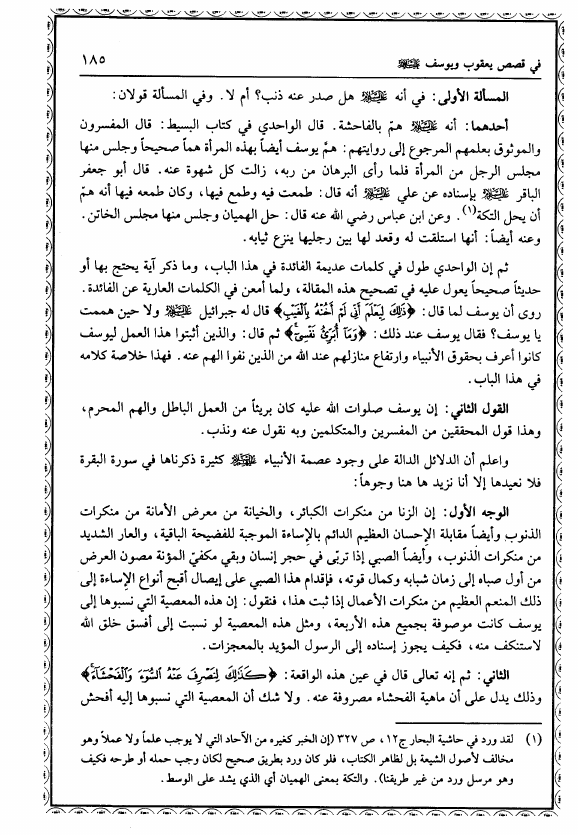 في قصص يعقوب ويوسف ﷺ ١٨٥
المسألة الأولى: في أنه ﷺ هل صدر عنه ذنب؟ أم لا. وفي المسألة قولان:
أحدهما: أنه ﷺ همّ بالفاحشة. قال الواحدي في كتاب البسيط: قال المفسرون
والموثوق بعلمهم المرجوع إلى روايتهم: همَّ يوسف أيضاً بهذه المرأة هماً صحيحاً وجلس منها
مجلس الرجل من المرأة فلما رأى البرهان من ربه، زالت كل شهوة عنه. قال أبو جعفر
الباقر ﷺ بإسناده عن علي ﷺ أنه قال: طمعت فيه وطمع فيها، وكان طمعه فيها أنه همّ
أن يحل التكة(١). وعن ابن عباس رضي الله عنه قال: حل الهميان وجلس منها مجلس الخاتن.
وعنه أيضاً: أنها استلقت له وقعد لها بين رجليها ينزع ثيابه.
ثم إن الواحدي طول في كلمات عديمة الفائدة في هذا الباب، وما ذكر آية يحتج بها أو
حديثاً صحيحاً يعول عليه في تصحيح هذه المقالة، ولما أمعن في الكلمات العارية عن الفائدة.
روى أن يوسف لما قال: ﴿ذَلِكَ لِيَعْلَمَ أَنِّي لَمْ أَخُنْهُ بِالْغَيْبِ﴾ قال له جبرائيل ﷺ ولا حين هممت
يا يوسف؟ فقال يوسف عند ذلك: ﴿وَمَا أُبَرِّئُ نَفْسِي﴾ ثم قال: والذين أثبتوا هذا العمل ليوسف
كانوا أعرف بحقوق الأنبياء وارتفاع منازلهم عند الله من الذين نفوا الهم عنه. فهذا خلاصة كلامه
في هذا الباب.
القول الثاني: إن يوسف صلوات الله عليه كان بريئاً من العمل الباطل والهم المحرم،
وهذا قول المحققين من المفسرين والمتكلمين وبه نقول عنه ونذب.
واعلم أن الدلائل الدالة على وجود عصمة الأنبياء ﷺ كثيرة ذكرناها في سورة البقرة
فلا نعيدها إلا أنا نزيد ها هنا وجوهاً:
الوجه الأول: إن الزنا من منكرات الكبائر، والخيانة من معرض الأمانة من منكرات
الذنوب وأيضاً مقابلة الإحسان العظيم الدائم بالإساءة الموجبة للفضيحة الباقية، والعار الشديد
من منكرات الذنوب، وأيضاً الصبي إذا تربّى في حجر إنسان وبقي مكفيّ المؤنة مصون العرض
من أول صباه إلى زمان شبابه وكمال قوته، فإقدام هذا الصبي على إيصال أقبح أنواع الإساءة إلى
ذلك المنعم العظيم من منكرات الأعمال إذا ثبت هذا، فنقول: إن هذه المعصية التي نسبوها إلى
يوسف كانت موصوفة بجميع هذه الأربعة، ومثل هذه المعصية لو نسبت إلى أفسق خلق الله
لاستنكف منه، فكيف يجوز إسناده إلى الرسول المؤيد بالمعجزات.
الثاني: ثم إنه تعالى قال في عين هذه الواقعة: ﴿كَذَلِكَ لِنَصْرِفَ عَنْهُ السُّوءَ وَالْفَحْشَاءَ﴾
وذلك يدل على أن ماهية الفحشاء مصروفة عنه. ولا شك أن المعصية التي نسبوها إليه أفحش
(١) لقد ورد في حاشية البحار ج١٢، ص ٣٢٧ (إن الخبر كغيره من الآحاد التي لا يوجب علماً ولا عملاً وهو
مخالف لأصول الشيعة بل لظاهر الكتاب، فلو كان ورد بطريق صحيح لكان وجب حمله أو طرحه فكيف
وهو مرسل ورد من غير طريقنا). والتكة بمعنى الهميان أي الذي يشد على الوسط.